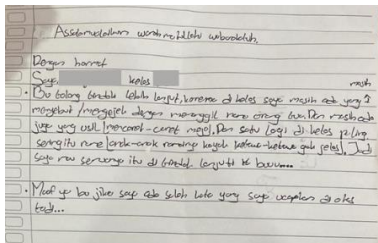 Assalamualaikum warahmatullahi wabarakatuh.
Dengan hormat
Saya kelas
Bu tolong tindak lebih lanjut, karena di kelas saya masih ada yang masih
menyebut / mengejek dengan memanggil nama orang tua. Dan masih ada
juga yang usil [mencoret-coret meja]. Dan satu lagi di kelas paling
sering itu rame [anak-anak ramaing kayak ketawa-ketawa gak jelas]. Jadi
saya mau semuanya itu di tindak lanjuti ya buu....
Maaf ya bu jika saya ada salah kata yang saya ucapkan di atas
tadi...